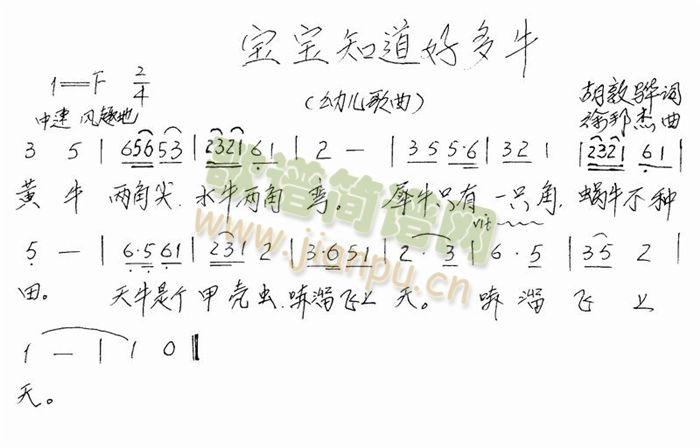 宝宝知道好多牛
(幼儿歌曲)
1=F 2/4
中速 风趣地
胡敦骅词
徐邦杰曲
3 5 | 6 5 6 5 3 | 2 3 2 1 6 1 | 2 — | 3 5 5·6 | 3 2 1 | 2 3 2 1 6 1 |
黄 牛 两角尖，水牛两角 弯。 犀牛只有 一只角，蜗牛不种
rit
5 — | 6·5 6 1 | 2 3 1 2 | 3·6 5 1 | 2·3 | 6·5 | 3 5 2 |
田。 天牛是个 甲壳虫，嗤溜飞上 天。 嗤 溜 飞 上
1 — | 1 0 ‖
天。
歌谱简谱网
www.jianpu.cn